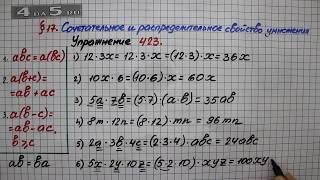 4 ДА 5.RU
§17. Сочетательное и распределительное свойство умножения
Упражнение 423.
1. abc = a(bc)
2. a(b+c)=
=ab+ac
3. a(b-c)=
=ab-ac,
b>c
ab=ba
1) 12·3x = 12·3·x = (12·3)·x = 36x
2) 10x·6 = (10·6)·x = 60x
3) 5a·7b = (5·7)·(a·b) = 35ab
4) 8m·12n = (8·12)·mn = 96mn
5) 2a·3b·4c = (2·3·4)·abc = 24abc
6) 5x·2y·10z = (5·2·10)·xyz = 100xy